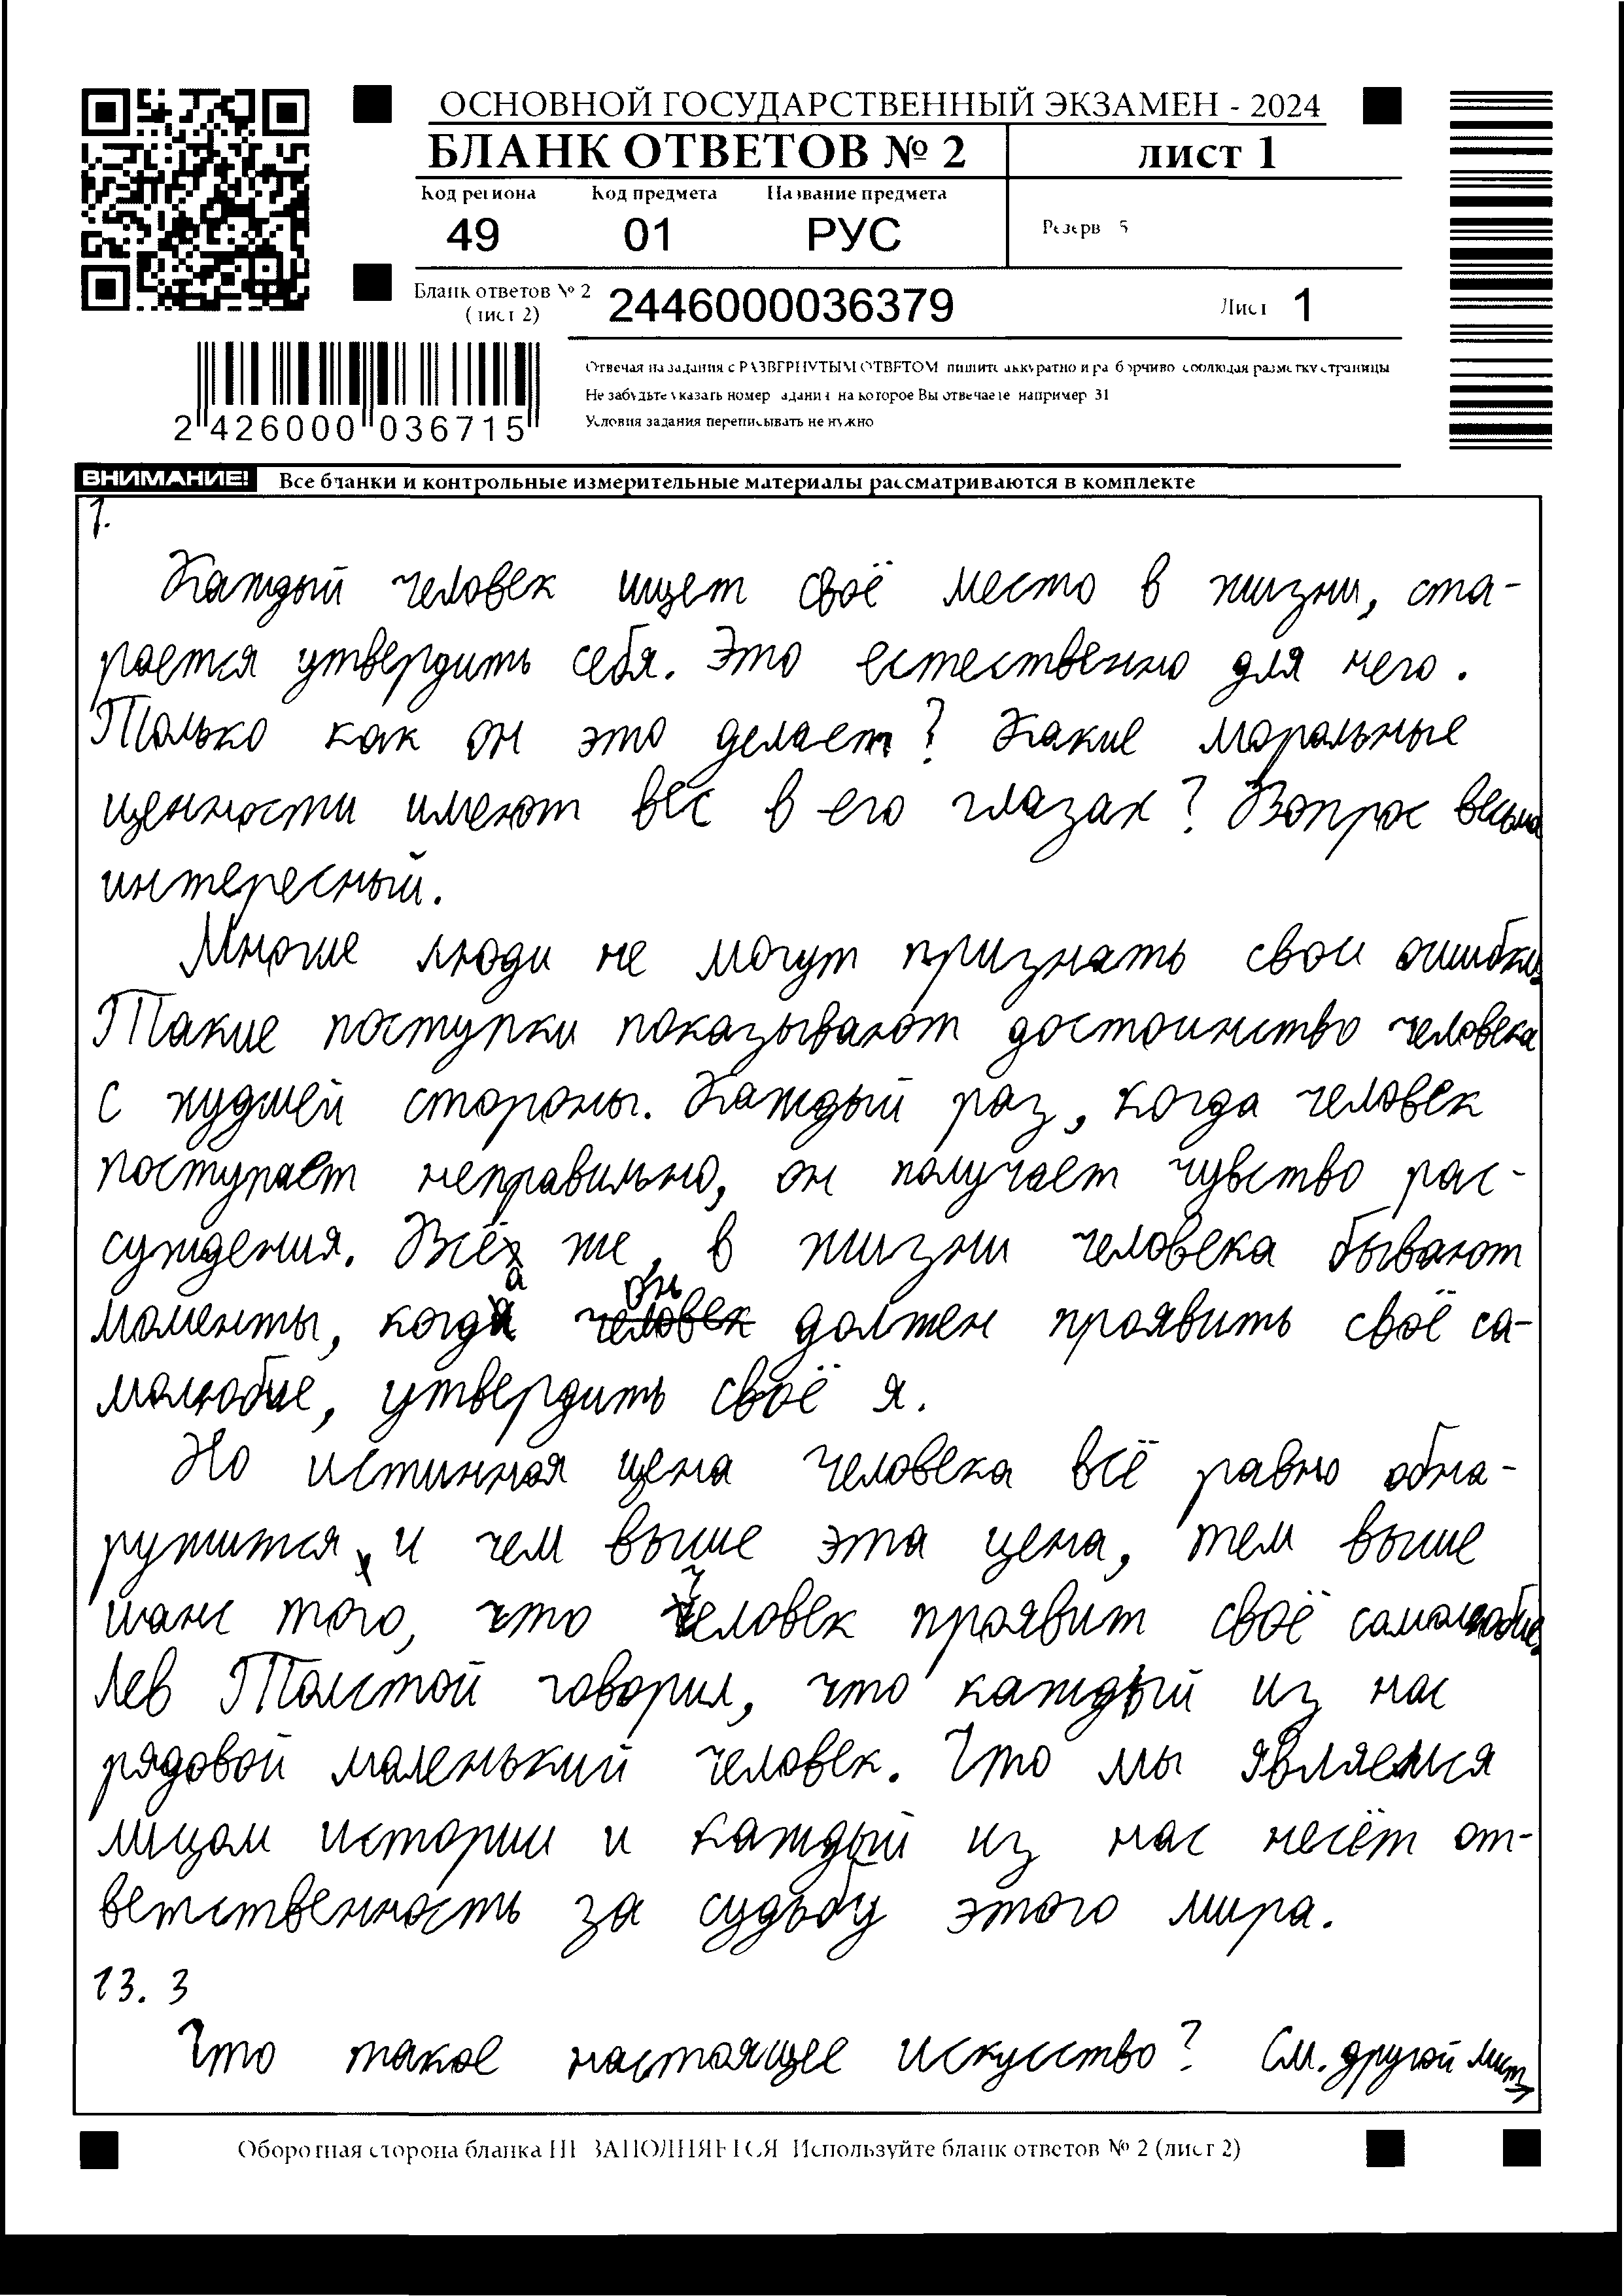 ОСНОВНОЙ ГОСУДАРСТВЕННЫЙ ЭКЗАМЕН - 2024
БЛАНК ОТВЕТОВ № 2
лист 1
Код региона Код предмета Название предмета
49 01 РУС
Резерв 5
Бланк ответов № 2
(лист 2)
2446000036379
Лист 1
Отвечая на задания с РАЗВЕРНУТЫМ ОТВЕТОМ пишите аккуратно и разборчиво соблюдая разметку страницы
Не забудьте указать номер задания на которое Вы отвечаете например 31
Условия задания переписывать не нужно
2 426000 036715
ВНИМАНИЕ! Все бланки и контрольные измерительные материалы рассматриваются в комплекте
1.
Каждый человек ищет своё место в жизни, ста-
рается утвердить себя. Это естественно для него.
Только как он это делает? Какие моральные
ценности имеют вес в его глазах? Вопрос весьма
интересный.
Многие люди не могут признать свои ошибки.
Такие поступки показывают достоинство человека
с худшей стороны. Каждый раз, когда человек
поступает неправильно, он получает чувство рас-
суждения. Всё же, в жизни человека бывают
моменты, когда человек он должен проявить своё са-
молюбие, утвердить своё я.
Но истинная цена человека всё равно обна-
ружится, и чем выше эта цена, тем выше
шанс того, что человек проявит своё самолюбие.
Лев Толстой говорил, что каждый из нас
рядовой маленький человек. Что мы являемся
лицом истории и каждый из нас несёт от-
ветственность за судьбу этого мира.
13. 3
Что такое настоящее искусство? См. другой лист→
Оборотная сторона бланка НЕ ЗАПОЛНЯЕТСЯ Используйте бланк ответов № 2 (лист 2)